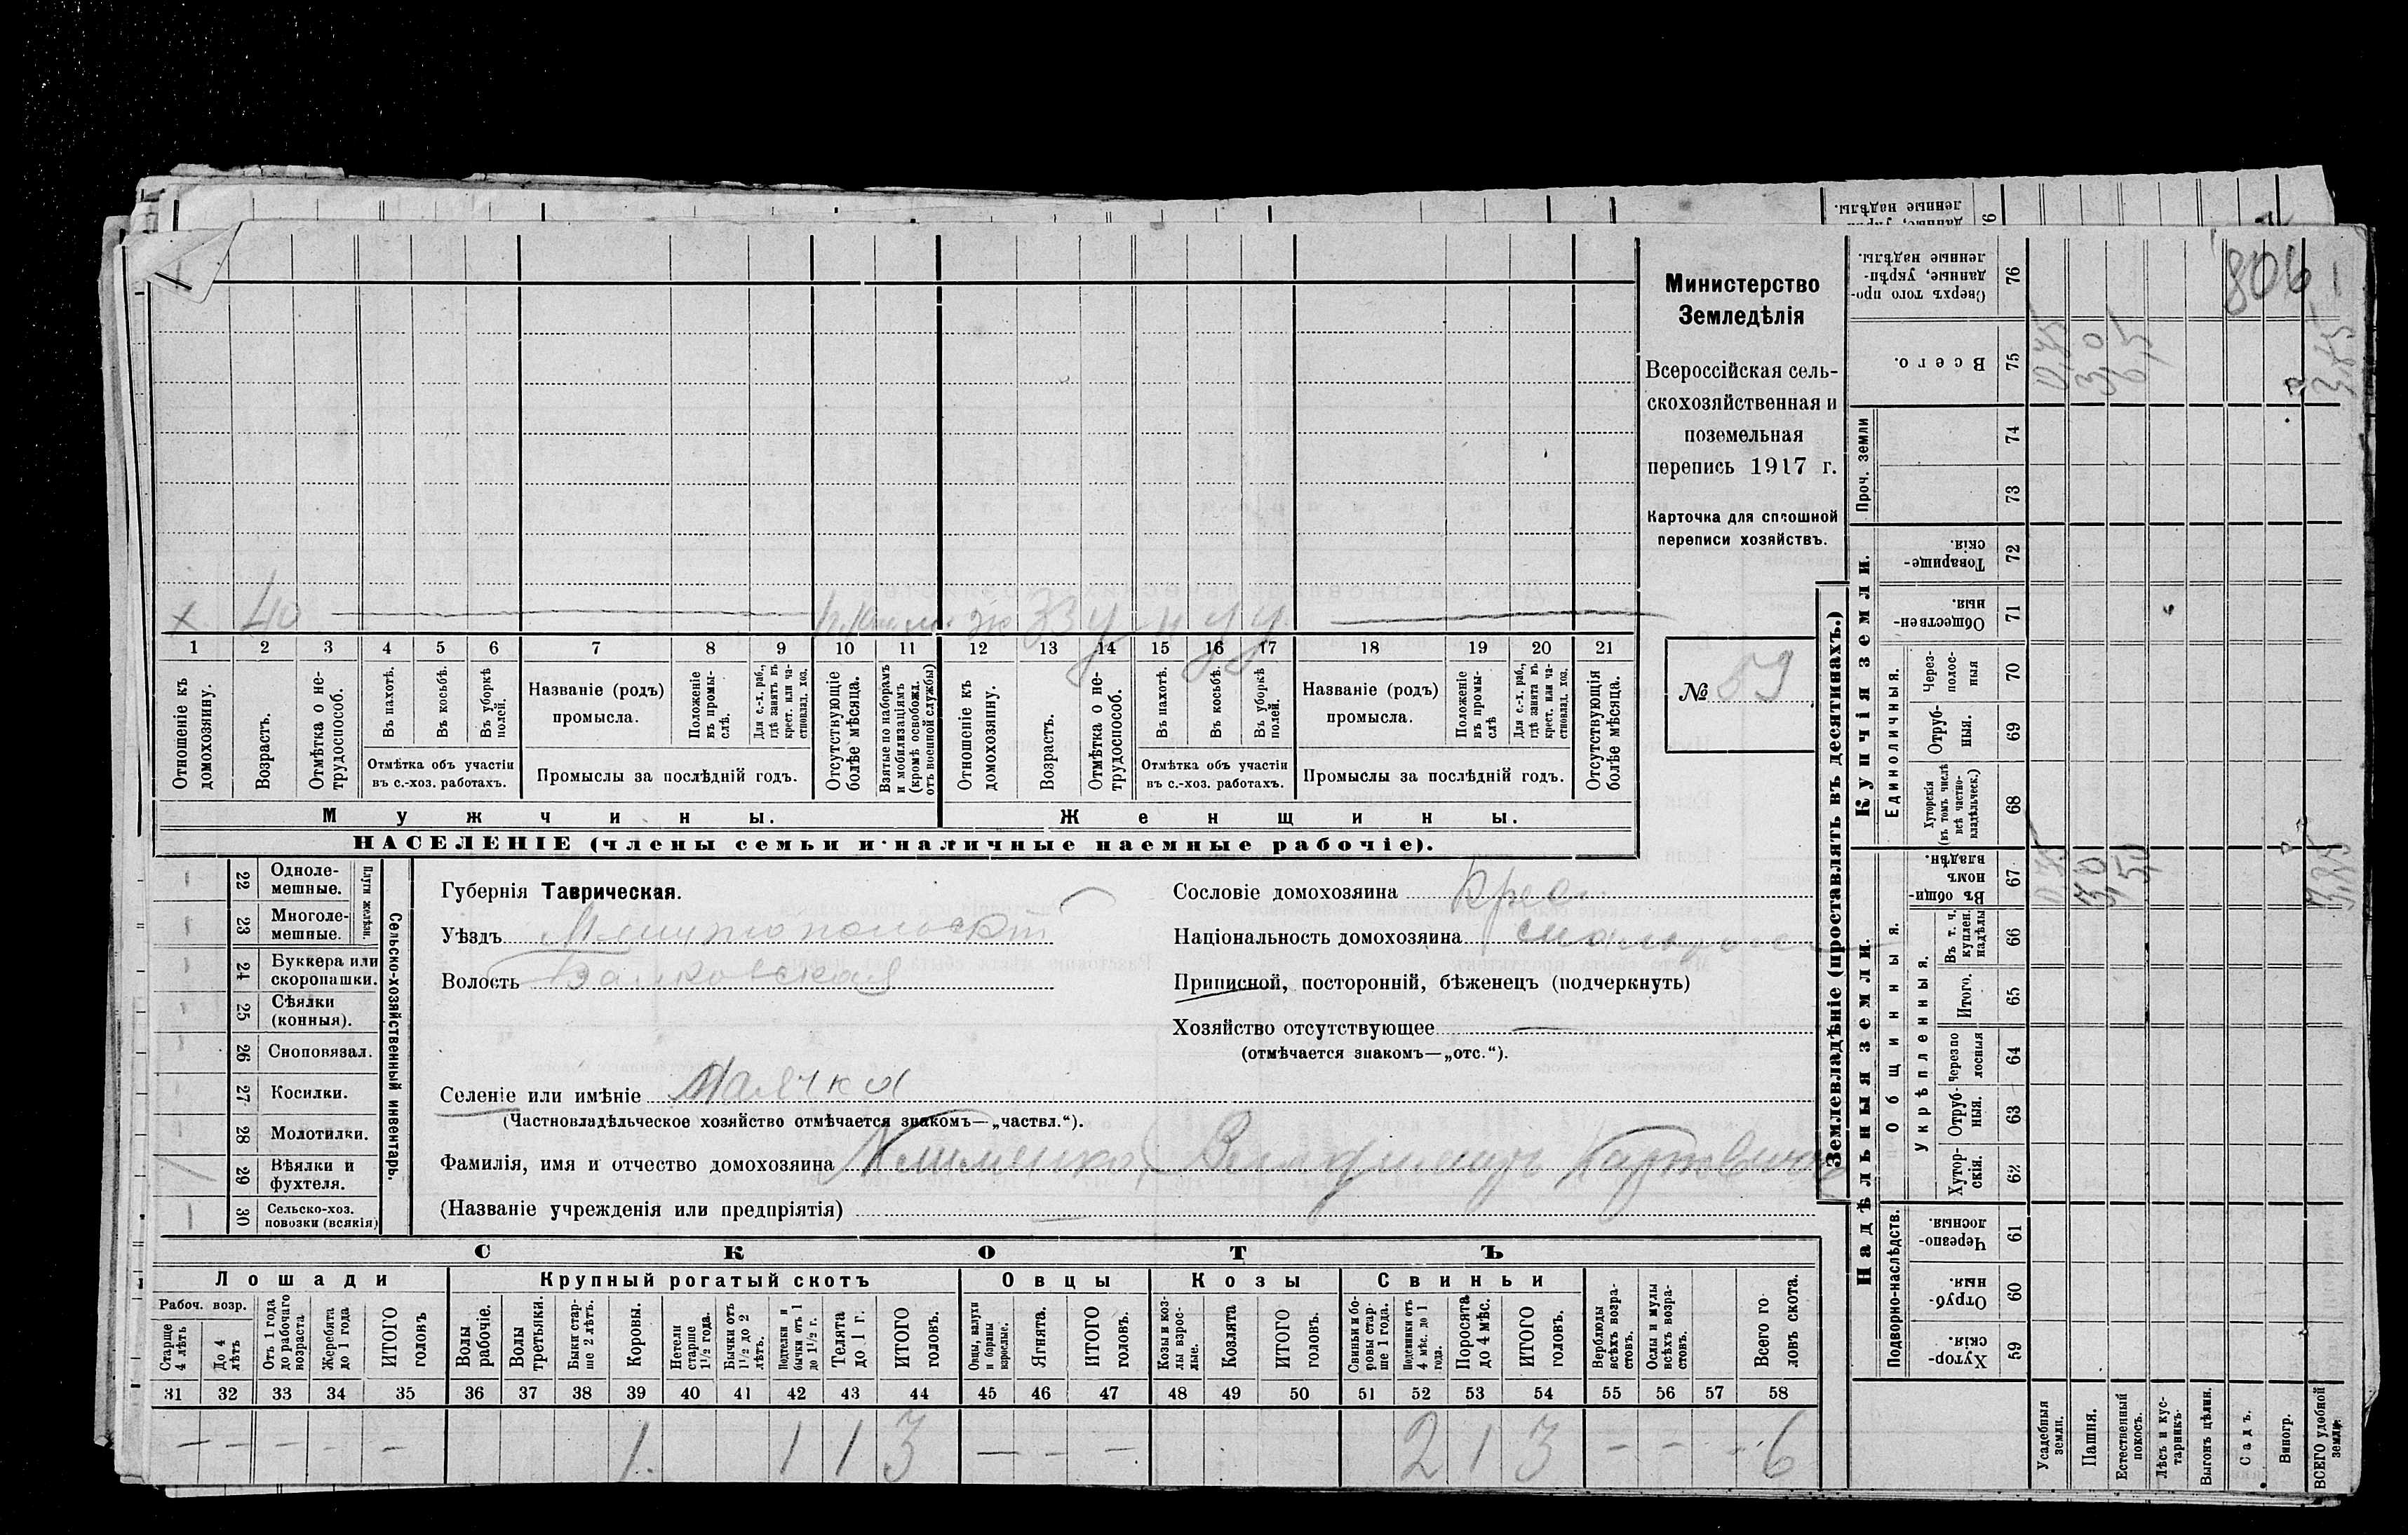 ленные надѣлы.
806
Министерство
Земледѣлія
Всероссійская сель-
скохозяйственная и
поземельная
перепись 1917 г.
Карточка для сплошной
переписи хозяйствъ.
№ 59
х 40 33
1 2 3 4 5 6 7 8 9 10 11 12 13 14 15 16 17 18 19 20 21
Отношеніе къ домохозяину.
Возрастъ.
Отмѣтка о не-трудоспособ.
Въ пахотѣ.
Въ косьбѣ.
Въ уборкѣ полей.
Отмѣтка объ участіи
въ с.-хоз. работахъ.
Названіе (родъ)
промысла.
Положеніе въ промы-слѣ.
Для с.-х. раб., гдѣ занятъ въ крест. или ча-стновлад. хоз.
Промыслы за послѣдній годъ.
Отсутствующіе болѣе мѣсяца.
Взятые по наборамъ и мобилизаціямъ (кромѣ освобожд. отъ военной службы)
Отношеніе къ домохозяину.
Возрастъ.
Отмѣтка о не-трудоспособ.
Въ пахотѣ.
Въ косьбѣ.
Въ уборкѣ полей.
Отмѣтка объ участіи
въ с.-хоз. работахъ.
Названіе (родъ)
промысла.
Положеніе въ промы-слѣ
Для с.-х. раб., гдѣ занята въ крест. или ча-стновлад. хоз.
Промыслы за послѣдній годъ.
Отсутствующія болѣе мѣсяца.
Мужчины. Женщины.
НАСЕЛЕНІЕ (члены семьи и наличные наемные рабочіе).
22 Одноле-мешные.
23 Многоле-мешные.
Плуги желѣзн.
24 Буккера или скоропашки.
25 Сѣялки (конныя).
26 Сноповязал.
27 Косилки.
28 Молотилки.
29 Вѣялки и фухтеля.
30 Сельско-хоз. повозки (всякія)
Сельско-хозяйственный инвентарь.
Губернія Таврическая.
Уѣздъ Мелитопольскій
Волость Балковская
Селеніе или имѣніе Маячка
(Частновладѣльческое хозяйство отмѣчается знакомъ—„частвл.“).
Фамилія, имя и отчество домохозяина Клименко, Владимиръ Карповичъ
(Названіе учрежденія или предпріятія)
Сословіе домохозяина Крес.
Національность домохозяина
Приписной, посторонній, бѣженецъ (подчеркнуть)
Хозяйство отсутствующее —
(отмѣчается знакомъ—„отс.“).
СКОТЪ
Лошади Крупный рогатый скотъ Овцы Козы Свиньи
Рабоч. возр.
Старше 4 лѣтъ
До 4 лѣтъ
Отъ 1 года до рабочаго возраста
Жеребята до 1 года
ИТОГО головъ
Волы рабочіе.
Волы третьяки.
Быки стар-ше 2 лѣтъ.
Коровы.
Нетели старше 1½ года.
Бычки отъ 1½ до 2 лѣтъ.
Подтелки и бычки отъ 1 до 1½ г.
Телята до 1 г.
ИТОГО головъ.
Овцы, валухи и бараны взрослые.
Ягнята.
ИТОГО головъ.
Козы и коз-лы взрос-лые.
Козлята
ИТОГО головъ.
Свиньи и бо-ровы стар-ше 1 года.
Подсвинки отъ 4 мѣс. до 1 года.
Поросята до 4 мѣс.
ИТОГО головъ.
Верблюды всѣхъ возра-стовъ.
Ослы и мулы всѣхъ возра-стовъ.
Всего го-ловъ скота.
31 32 33 34 35 36 37 38 39 40 41 42 43 44 45 46 47 48 49 50 51 52 53 54 55 56 57 58
— — — — — 1. 1 1 3 — — — 2 1 3 — — — 6
Землевладѣніе (проставлять въ десятинахъ.)
Купчія земли.
Надѣльныя земли.
Сверхъ того про-данные, укрѣп-ленные надѣлы. 76
Всего. 75
Проч. земли 74 73
Товарище-скія. 72
Обществен-ныя. 71
Единоличныя.
Черезполос-ныя 70
Отруб-ныя. 69
Хуторскія (въ томъ числѣ всѣ частно-владѣльческ.) 68
Общинныя.
Въ общи-номъ владѣн. 67
Укрѣпленныя.
Въ т. ч. куплен. надѣлы 66
Итого. 65
Черезполосныя 64
Отруб-ныя. 63
Хутор-скія. 62
Подворно-наслѣдств.
Черезпо-лосныя. 61
Отруб-ныя. 60
Хутор-скія. 59
Усадебныя земли.
Пашня.
Естественный покосъ.
Лѣсъ и кус-тарникъ.
Выгонъ цѣлин.
Садъ.
Виногр.
ВСЕГО удобной земли.